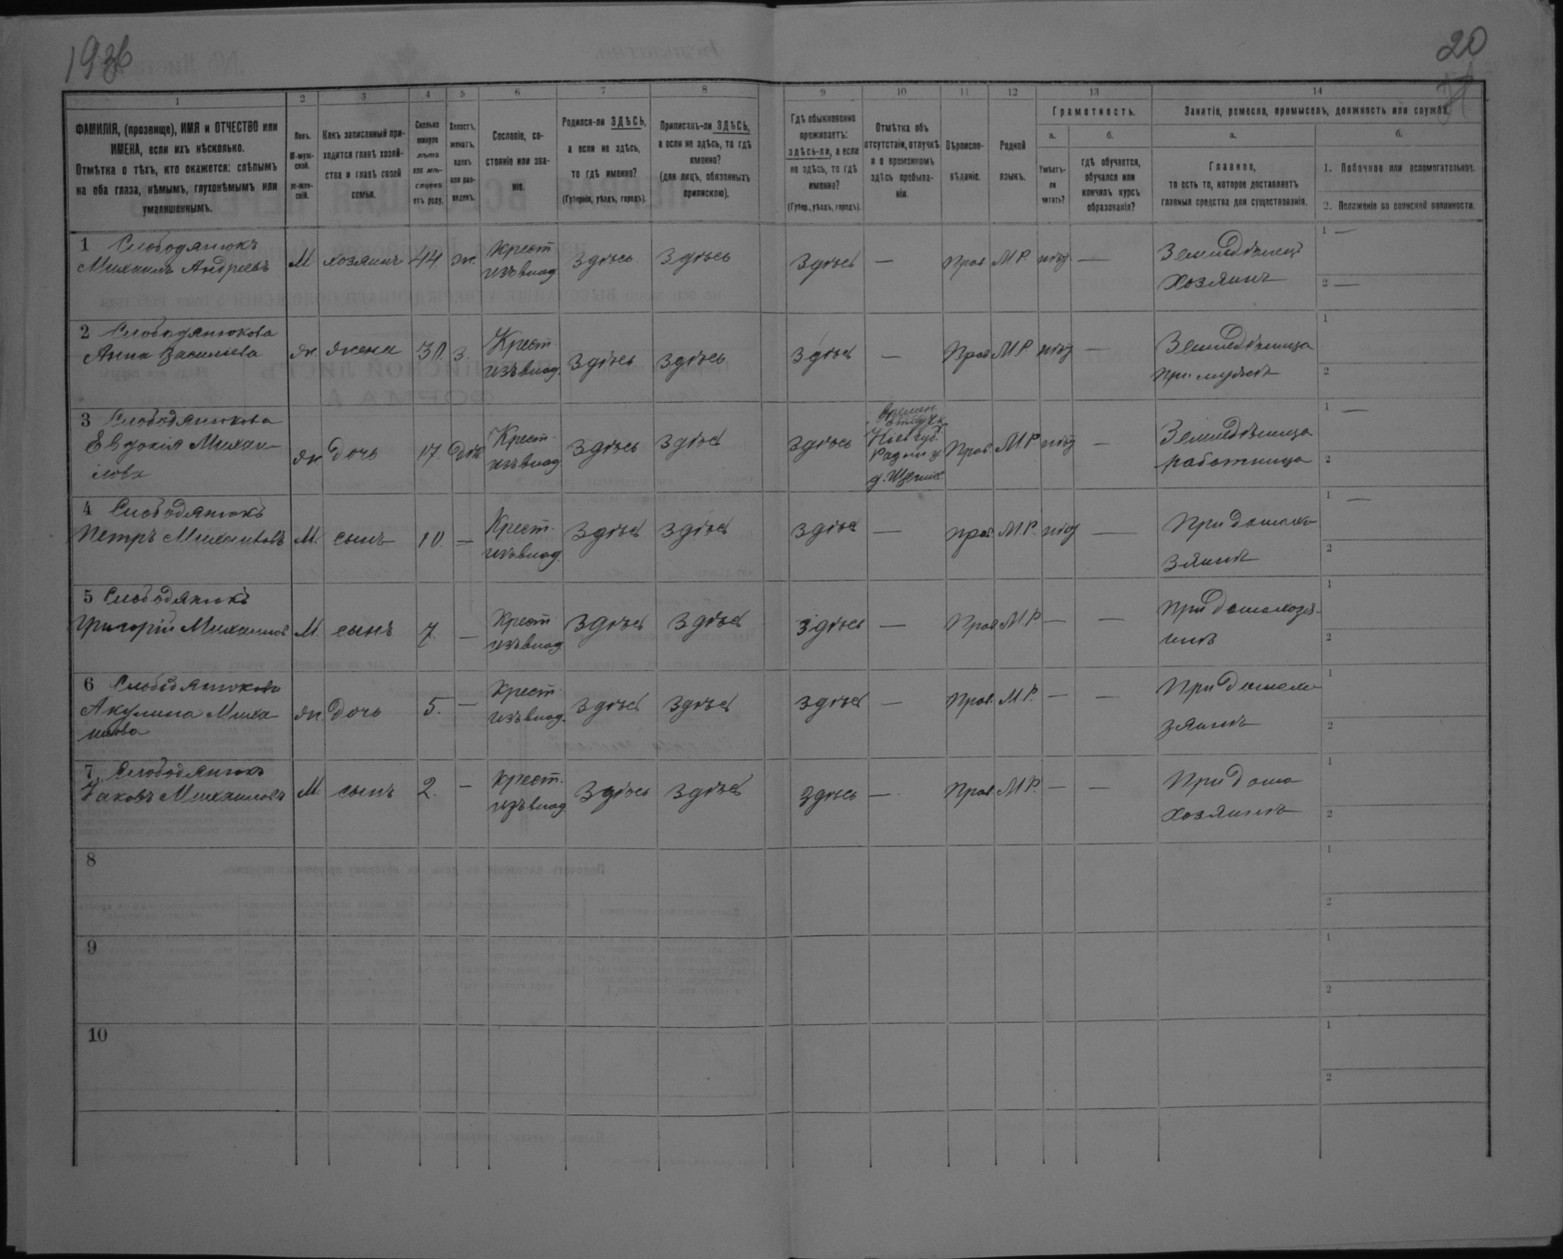 193б
20
1 2 3 4 5 6 7 8 9 10 11 12 13 14
ФАМИЛІЯ, (прозвище), ИМЯ и ОТЧЕСТВО или
ИМЕНА, если ихъ нѣсколько.
Отмѣтка о тѣхъ, кто окажется: слѣпымъ
на оба глаза, нѣмымъ, глухонѣмымъ или
умалишеннымъ.
Полъ.
М-муж-
ской.
Ж-жен-
скій.
Какъ записанный при-
ходится главѣ хозяй-
ства и главѣ своей
семьи.
Сколько
минуло
лѣтъ
или мѣ-
сяцевъ
отъ роду.
Холостъ,
женатъ,
вдовъ
или раз-
веденъ.
Сословіе, со-
стояніе или зва-
ніе.
Родился-ли ЗДѢСЬ,
а если не здѣсь,
то гдѣ именно?
(Губернія, уѣздъ, городъ).
Приписанъ-ли ЗДѢСЬ,
а если не здѣсь, то гдѣ
именно?
(для лицъ, обязанныхъ
припискою).
Гдѣ обыкновенно
проживаетъ:
здѣсь-ли, а если
не здѣсь, то гдѣ
именно?
(Губер., уѣздъ, городъ).
Отмѣтка объ
отсутствіи, отлучкѣ
и о временномъ
здѣсь пребыва-
ніи.
Вѣроиспо-
вѣданіе.
Родной
языкъ.
Грамотность.
а.
Умѣетъ-
ли
читать?
б.
гдѣ обучается,
обучался или
кончилъ курсъ
образованія?
Занятіе, ремесло, промыселъ, должность или служба.
а.
Главное,
то есть то, которое доставляетъ
главныя средства для существованія.
б.
1. Побочное или вспомогательное.
2. Положеніе по воинской повинности.
1 Слободянюкъ
Михаилъ Андреевъ М хозяинъ 44 ж. Крест. изъ влад. Здѣсь Здѣсь Здѣсь — Прав. М.Р. нѣт — Земледѣлецъ хозяинъ
1 —
2 —
2 Слободянюкова
Анна Васильева ж. жена 3. Крест. изъ влад. Здѣсь Здѣсь Здѣсь — Прав. М.Р. нѣт — Земледѣлица при мужѣ
1
2
3 Слободянюкова
Евдокія Михаи-
лова ж. дочь 17. Крест. изъ влад. Здѣсь Здѣсь Здѣсь Времен. Кіев. губ. Прав. М.Р. нѣт — Земледѣлица работница
1 —
2
4 Слободянюкъ
Петръ Михаиловъ М. сынъ 10. — Крест. изъ влад. Здѣсь Здѣсь Здѣсь — Прав. М.Р. нѣт — При домохо-
зяинѣ
1 —
2
5 Слободянюкъ
Григорій Михаиловъ М. сынъ 7. — Крест. изъ влад. Здѣсь Здѣсь Здѣсь — Прав. М.Р. — — При домохозя-
инѣ
1
2
6 Слободянюкова
Акулина Миха-
илова ж. дочь 5. — Крест. изъ влад. Здѣсь Здѣсь Здѣсь — Прав. М.Р. — — При домохо-
зяинѣ
1
2
7. Слободянюкъ
Яковъ Михаиловъ М сынъ 2. — Крест. изъ влад. Здѣсь Здѣсь Здѣсь — Прав. М.Р. — — При домо
хозяинѣ
1
2
8
1
2
9
1
2
10
1
2